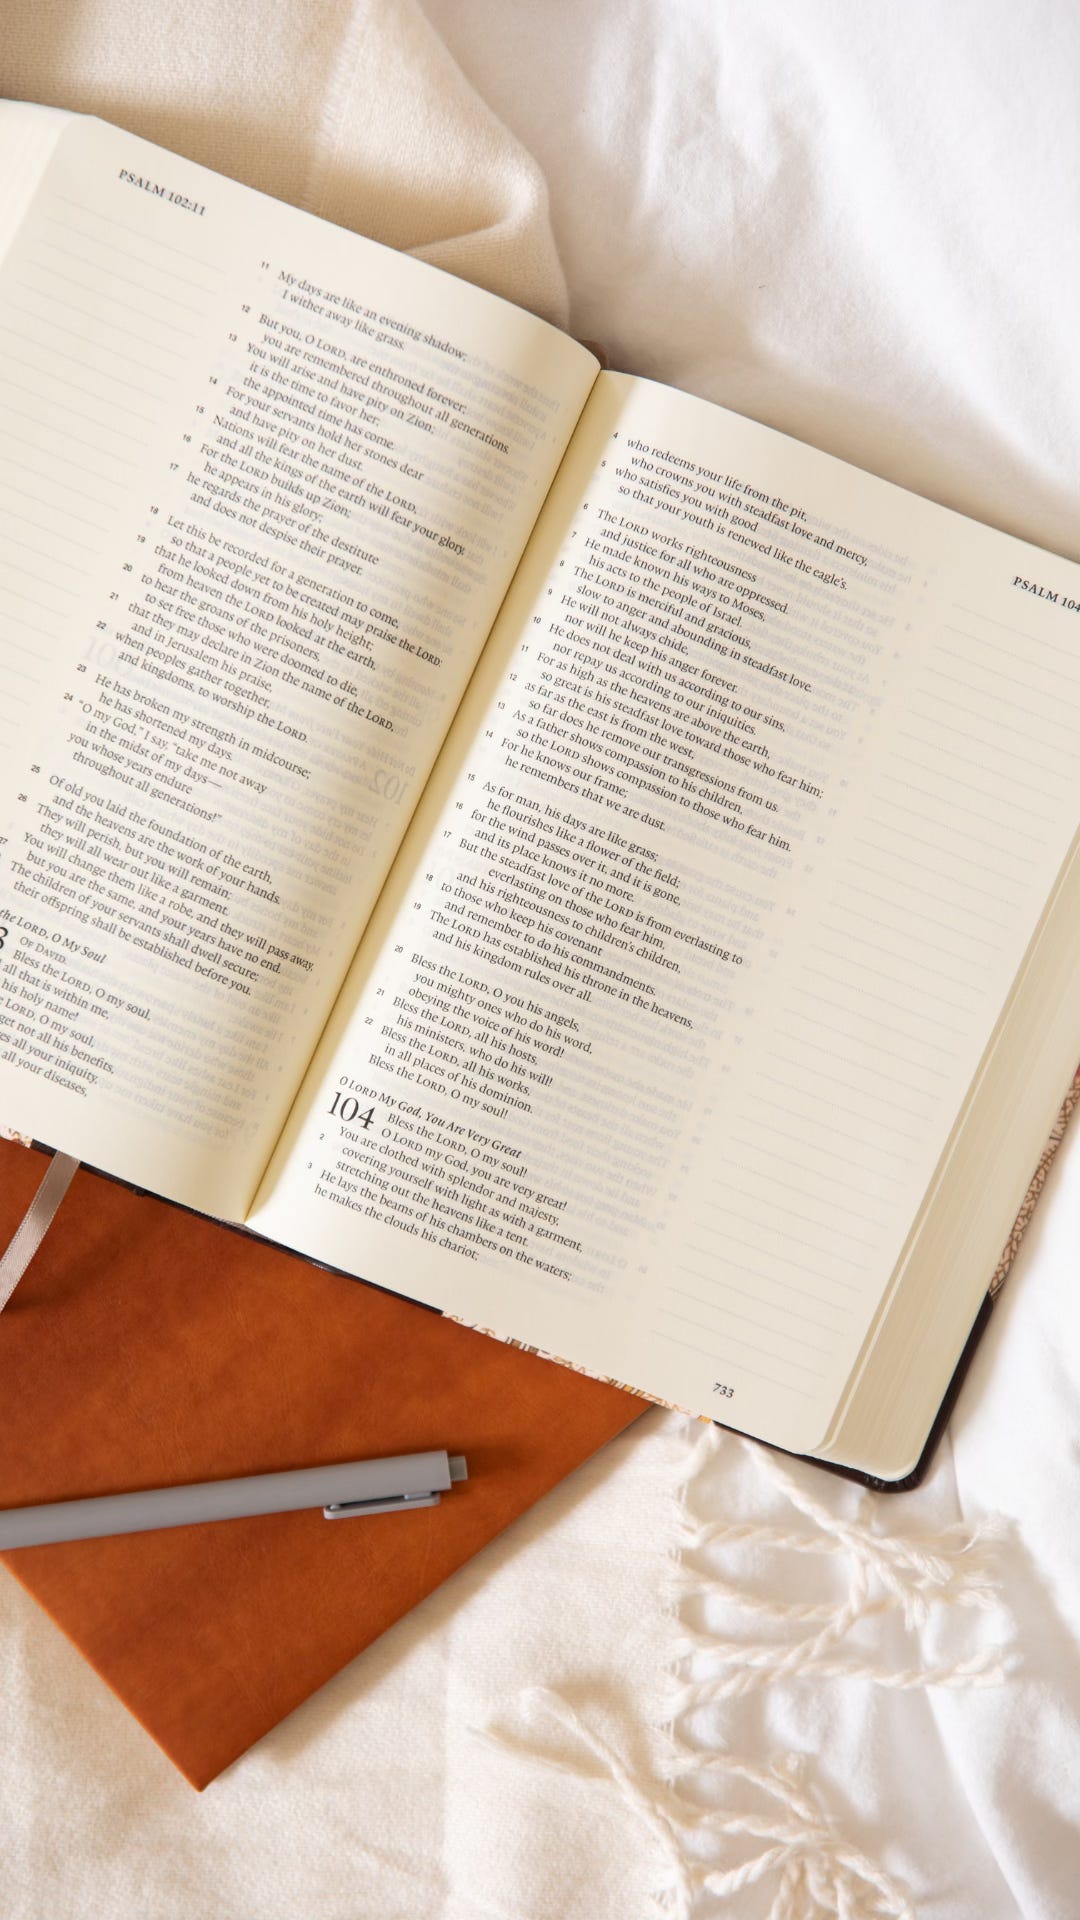 PSALM 102:11
11 My days are like an evening shadow;
I wither away like grass.
12 But you, O LORD, are enthroned forever;
you are remembered throughout all generations.
13 You will arise and have pity on Zion;
it is the time to favor her;
the appointed time has come.
14 For your servants hold her stones dear
and have pity on her dust.
15 Nations will fear the name of the LORD,
and all the kings of the earth will fear your glory.
16 For the LORD builds up Zion;
he appears in his glory;
17 he regards the prayer of the destitute
and does not despise their prayer.
18 Let this be recorded for a generation to come,
so that a people yet to be created may praise the LORD:
19 that he looked down from his holy height;
from heaven the LORD looked at the earth,
20 to hear the groans of the prisoners,
to set free those who were doomed to die,
21 that they may declare in Zion the name of the LORD,
and in Jerusalem his praise,
22 when peoples gather together,
and kingdoms, to worship the LORD.
23 He has broken my strength in midcourse;
he has shortened my days.
24 "O my God," I say, "take me not away
in the midst of my days—
you whose years endure
throughout all generations!"
25 Of old you laid the foundation of the earth,
and the heavens are the work of your hands.
26 They will perish, but you will remain;
they will all wear out like a garment.
You will change them like a robe, and they will pass away,
27 but you are the same, and your years have no end.
The children of your servants shall dwell secure;
their offspring shall be established before you.
the LORD, O My Soul
3 OF DAVID.
Bless the LORD, O my soul,
all that is within me,
his holy name!
LORD, O my soul,
get not all his benefits,
es all your iniquity,
all your diseases,
PSALM 104
4 who redeems your life from the pit,
who crowns you with steadfast love and mercy,
5 who satisfies you with good
so that your youth is renewed like the eagle's.
6 The LORD works righteousness
and justice for all who are oppressed.
7 He made known his ways to Moses,
his acts to the people of Israel.
8 The LORD is merciful and gracious,
slow to anger and abounding in steadfast love.
9 He will not always chide,
nor will he keep his anger forever.
10 He does not deal with us according to our sins,
nor repay us according to our iniquities.
11 For as high as the heavens are above the earth,
so great is his steadfast love toward those who fear him;
12 as far as the east is from the west,
so far does he remove our transgressions from us.
13 As a father shows compassion to his children,
so the LORD shows compassion to those who fear him.
14 For he knows our frame;
he remembers that we are dust.
15 As for man, his days are like grass;
he flourishes like a flower of the field;
16 for the wind passes over it, and it is gone,
and its place knows it no more.
17 But the steadfast love of the LORD is from everlasting to
everlasting on those who fear him,
and his righteousness to children's children,
18 to those who keep his covenant
and remember to do his commandments.
19 The LORD has established his throne in the heavens,
and his kingdom rules over all.
20 Bless the LORD, O you his angels,
you mighty ones who do his word,
obeying the voice of his word!
21 Bless the LORD, all his hosts,
his ministers, who do his will!
22 Bless the LORD, all his works,
in all places of his dominion.
Bless the LORD, O my soul!
O LORD My God, You Are Very Great
104 Bless the LORD, O my soul!
O LORD my God, you are very great!
You are clothed with splendor and majesty,
2 covering yourself with light as with a garment,
stretching out the heavens like a tent.
3 He lays the beams of his chambers on the waters;
he makes the clouds his chariot;
733